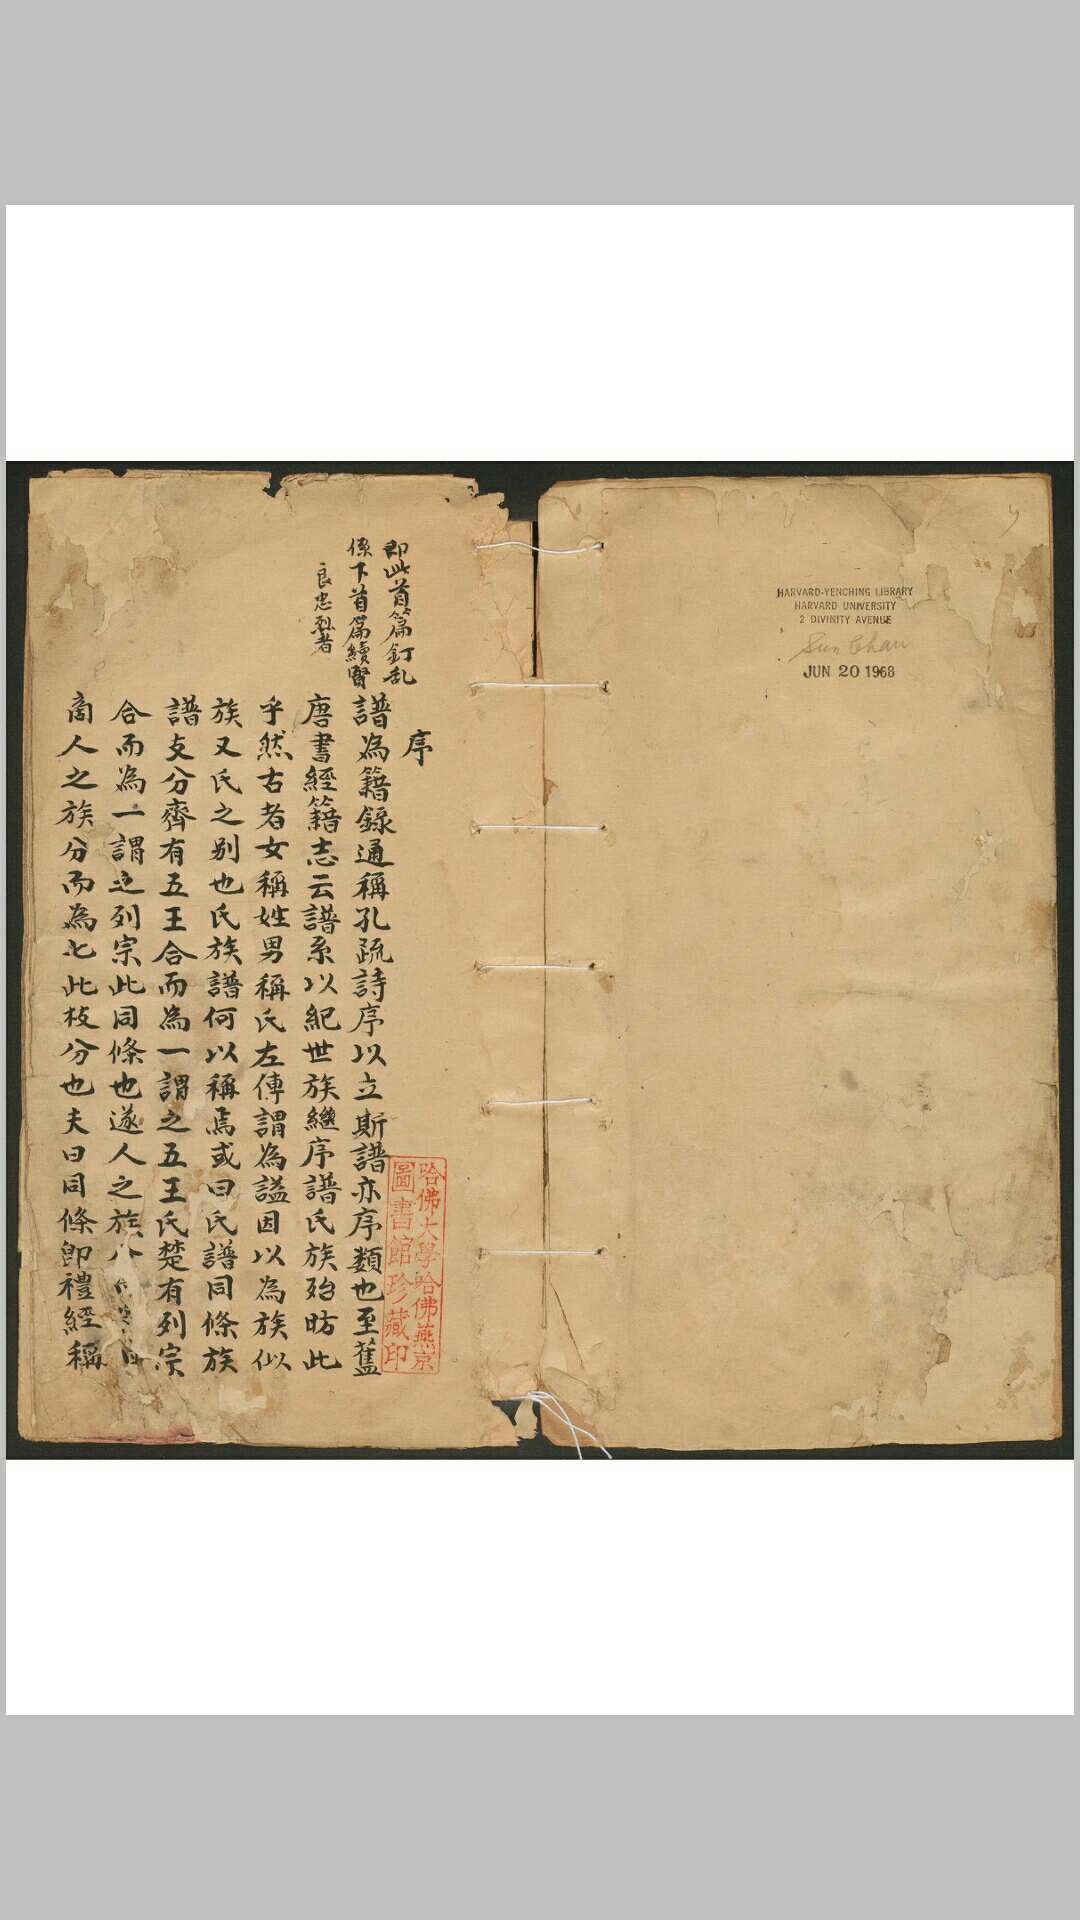 HARVARD-YENCHING LIBRARY
HARVARD UNIVERSITY
2 DIVINITY AVENUE
Sun Chau
JUN 20 1968
即此首篇釘乱
係下首篇續賢
良忠烈者
序
譜為籍錄通稱孔疏詩序以立斯譜亦序類也至舊
唐書經籍志云譜系以紀世族繼序譜氏族殆昉此
乎然古者女稱姓男稱氏左傳謂為謚因以為族似
族又氏之別也氏族譜何以稱焉或曰氏譜同條族
譜支分齊有五王合而為一謂之五王氏楚有列宗
合而為一謂之列宗此同條也遂人之族
商人之族分而為七此枝分也夫曰同條即禮經稱
哈佛大學哈佛燕京
圖書館珍藏印